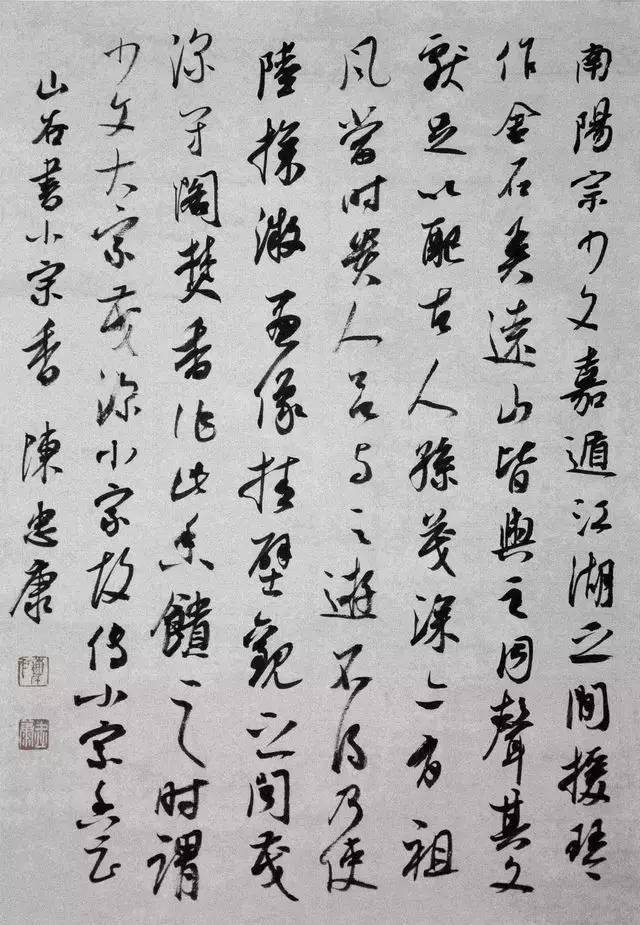 南陽宗少文嘉遁江湖之間援琴
作金石弄遠山皆與之同聲其文
獻足以配古人孫茂深亦有祖
風當時貴人欲與之遊不得乃使
陸探微畫像挂壁觀之聞茂
深閉閤焚香作此香饋之時謂
少文大宗茂深小宗故傳小宗香云
山谷書小宗香 陳忠康